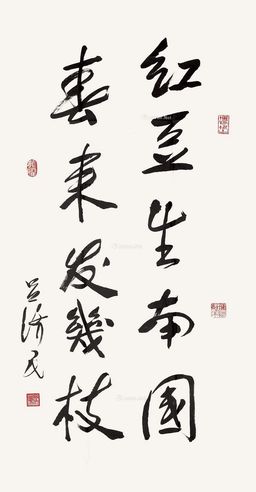 红豆生南國
春来发幾枝
吕济民